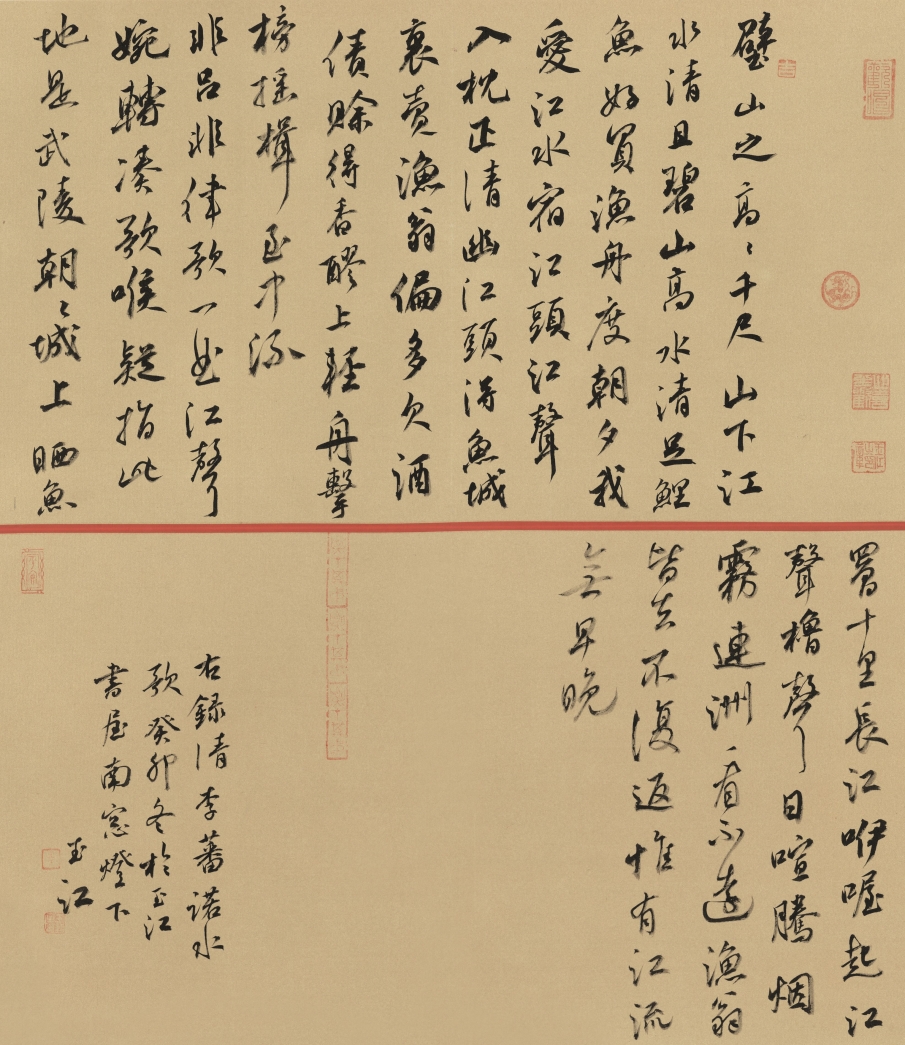 璧山之高〻千尺山下江
水清且碧山高水清足鯉
魚好買漁舟度朝夕我
愛江水宿江頭江聲
入枕正清幽江頭得魚城
裏賣漁翁偏多欠酒
債賒得香醪上輕舟擊
榜搖楫至中流
非呂非律歌一曲江聲
婉轉湊歌喉疑指此
地是武陵朝〻城上晒魚
罾十里長江咿喔起江
聲櫓聲日喧騰烟
霧連洲看不遠漁翁
皆去不復返惟有江流
無早晚
右錄清李蕃諾水
歌癸卯冬於玉江
書屋南窓燈下
玉江